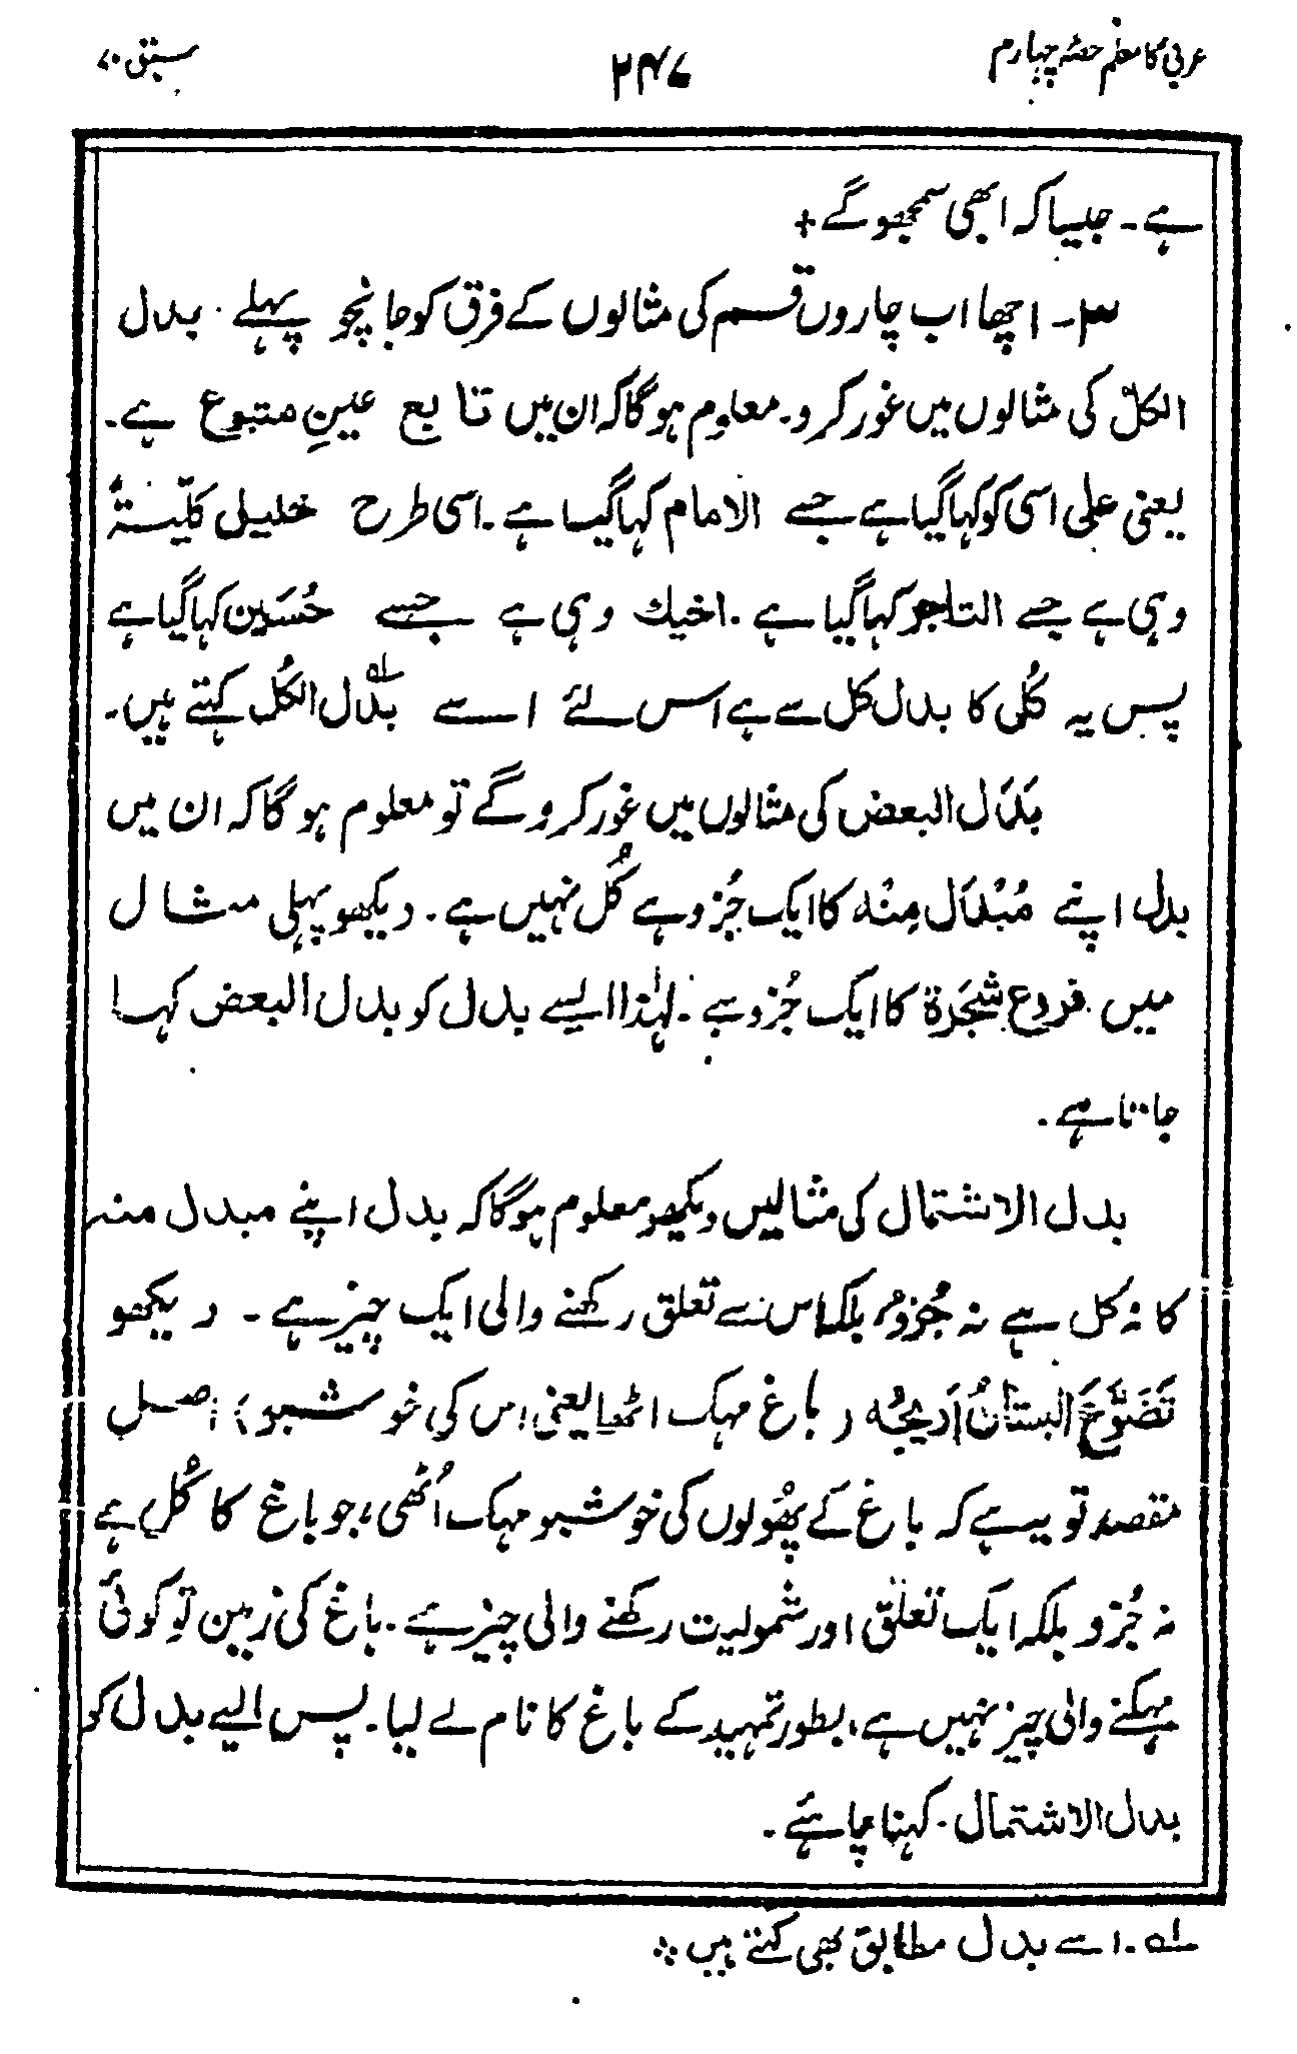 عربی کا معلم حصّہ چہارم ۲۴۷ سبق ۷۰
ہے۔ جیسا کہ ابھی سمجھو گے +
۳۔ اچھا اب چاروں قسم کی مثالوں کے فرق کو جانچو پہلے بدل
الکلّ کی مثالوں میں غور کرو۔ معلوم ہوگا کہ ان میں تابع عینِ متبوع ہے۔
یعنی علی اسی کو کہا گیا ہے جسے الامام کہا گیا ہے۔ اسی طرح خلیل
وہی ہے جسے التاجر کہا گیا ہے۔ اخیك وہی ہے جسے حُسَین کہا گیا ہے
پس یہ کُلی کا بدل کل سے ہے اس لئے اسے بدَل الکُل لہ کہتے ہیں۔
بَدَل البعض کی مثالوں میں غور کرو گے تو معلوم ہوگا کہ ان میں
بدل اپنے مُبْدَل مِنْہ کا ایک جُزو ہے کُل نہیں ہے۔ دیکھو پہلی مثال
میں فروع شَجَرَة کا ایک جُزو ہے۔ لہٰذا ایسے بدل کو بدل البعض کہا
جاتا ہے۔
بدل الاشتمال کی مثالیں دیکھو معلوم ہوگا کہ بدل اپنے مبدل منہ
کا نہ کل ہے نہ جُزو بلکہ اس سے تعلق رکھنے والی ایک چیز ہے۔ دیکھو
تَضَوَّعَ البستانُ اَرِیجُہ (باغ مہک اٹھا یعنی اس کی خوشبو) اصل
مقصد تو یہ ہے کہ باغ کے پھُولوں کی خوشبو مہک اُٹھی، جو باغ کا کُل ہے
نہ جُزو بلکہ ایک تعلّق اور شمولیت رکھنے والی چیز ہے۔ باغ کی زمین تو کوئی
مہکنے والی چیز نہیں ہے، بطور تمہید کے باغ کا نام لے لیا۔ پس ایسے بدل کو
بدل الاشتمال کہنا چاہئے۔
لہ۔ اسے بدل مطابق بھی کہتے ہیں ⁘